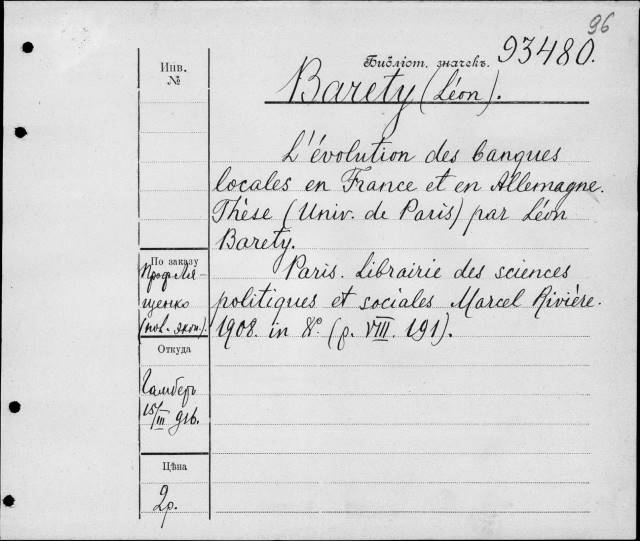 96
Библіот. значекъ. 93480.
Инв.
№
Barety (Léon).
L'évolution des banques
locales en France et en Allemagne.
Thèse (Univ. de Paris) par Léon
Barety.
По заказу
Проф. Ля-
щенко
(пол. экон).
Paris. Librairie des sciences
politiques et sociales Marcel Rivière.
1908. in 8º. (p. VIII. 191).
Откуда
Гамберъ
15/III 916.
Цѣна
2р.